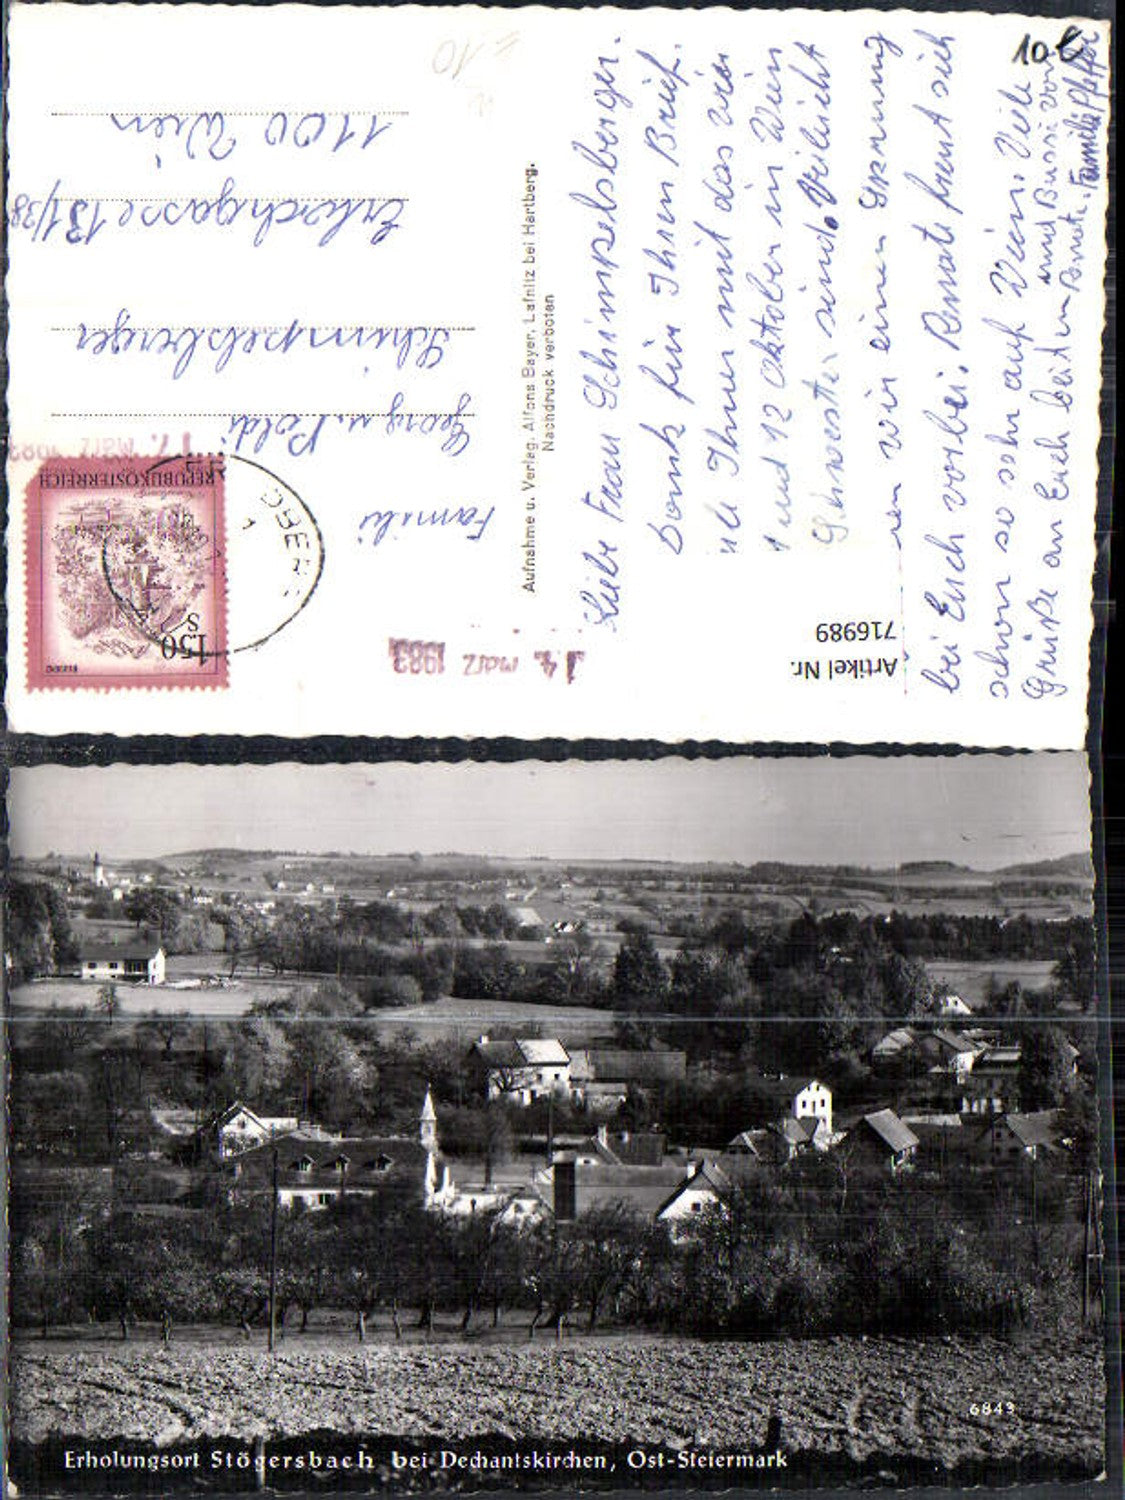 10 €
= 10
Liebe Frau Schimpelsberger.
Dank für Ihren Brief.
Ihnen mit das wir
1 und 12 Oktober in Wien
sind. Vileicht
wir einen Sprung
bei Euch vorbei. Renate freut sich
schon so sehr auf Wien. Viele
Grüße an Euch beiden
und Bussi von
Renate. Familie Pfeffer
Aufnahme u. Verlag: Alfons Bayer, Lafnitz bei Hartberg.
Nachdruck verboten
Familie
Georg u. Poldi
Schimpelsberger
Erlachgasse 131/38
1100 Wien
REPUBLIK ÖSTERREICH
150
S
BLUDENZ
17. März 1983
14. März 1983
Artikel Nr.
716989
6843
Erholungsort Stögersbach bei Dechantskirchen, Ost-Steiermark